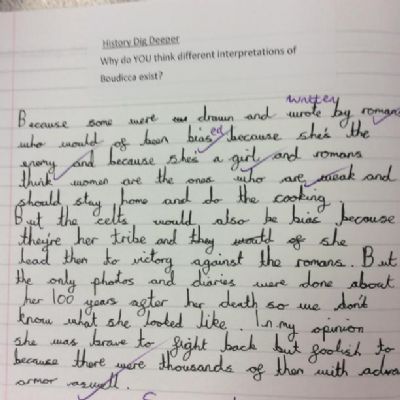 History Dig Deeper
Why do YOU think different interpretations of
Boudicca exist?
written
Because some were drawn and wrote by romans
who would of been biased because she's the
enemy and because she's a girl and romans
think women are the ones who are weak and
should stay home and do the cooking
But the celts would also be bias because
they're her tribe and they would of she
lead them to victory against the romans. But
the only photos and diaries were done about
her 100 years after her death so we don't
know what she looked like. In my opinion
she was brave to fight back but foolish to
because there were thousands of them with adva
armor aswell.